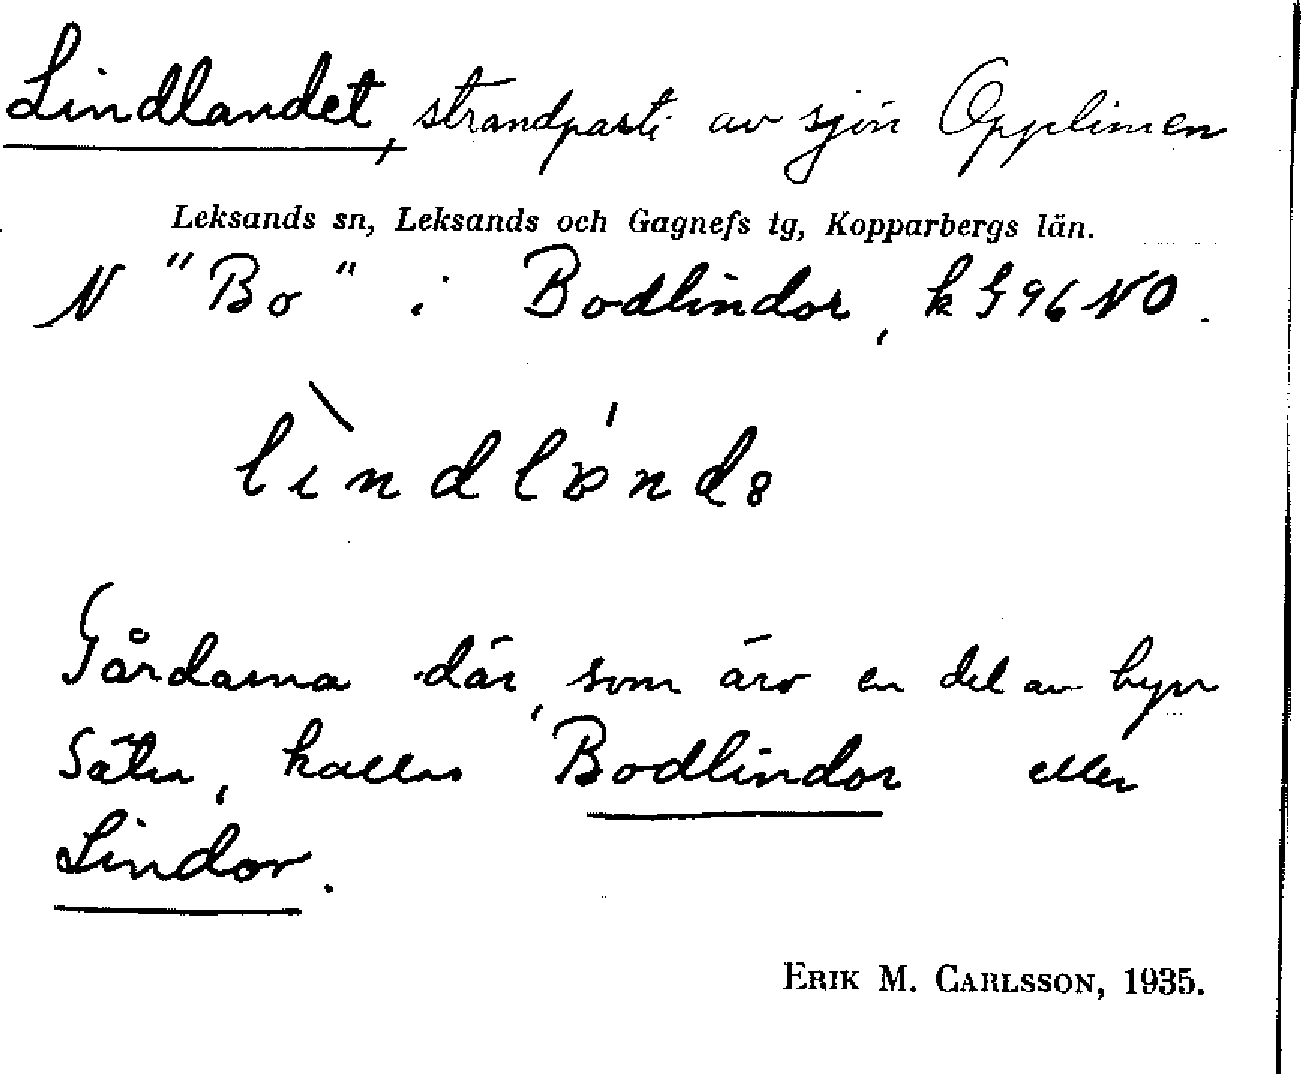 Lindlandet, strandparti av sjön Opplimen
Leksands sn, Leksands och Gagnefs tg, Kopparbergs län.
N "Bo" i Bodlindor, k G 96 NO.
lìndlánd
Gårdarna där, som äro en del av byn
Säter, kallas Bodlindor eller
Lindor.
ERIK M. CARLSSON, 1935.